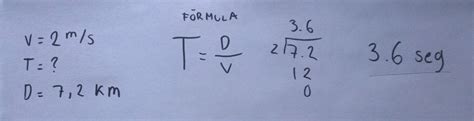 FÓRMULA
V = 2 m/s
T = ?
D = 7,2 km
T = D/V
3.6
2 7.2
12
0
3.6 seg